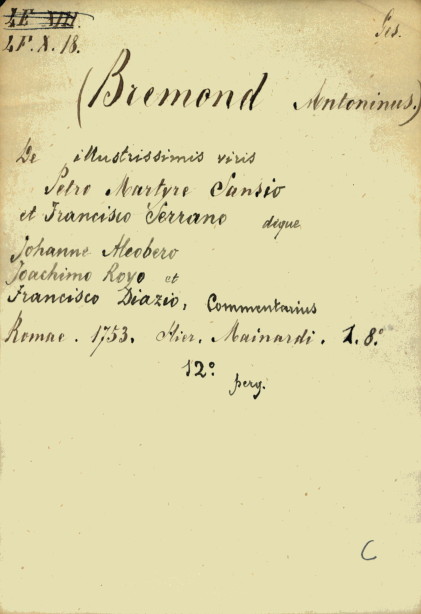 LE XIII.
LF. X. 18.
Ges.
(Bremond Antoninus.)
De illustrissimis viris
Petro Martyre Sansio
et Francisco Serrano deque
Johanne Alcobero
Joachimo Royo et
Francisco Diazio, Commentarius
Romae. 1753. Hier. Mainardi. 1. 8.°
12.°
perg.
C